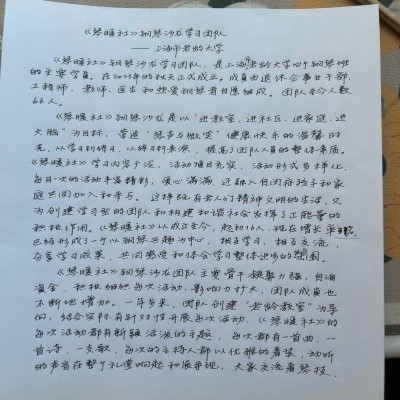 《琴暖社》钢琴沙龙学习团队
—— 上海市老龄大学
《琴暖社》钢琴沙龙学习团队,是上海市老龄大学四个钢琴班
的主要学员。在2023年的秋天正式成立。成员由退休企事业干部、
工程师、教师、医生和热爱钢琴者自愿组成。团队本分人数
66人。
《琴暖社》钢琴沙龙是以"进教室、进社区、进家庭、进
大脑"为目标,营造"琴声与微笑"健康快乐的温馨时
光,以学习到练习,以练习到表演,提高了团队人员的整体素质。
《琴暖社》学习内容广泛,活动项目充实,活动形式多样化,
每月一次的活动丰富精彩,爱心满满,还融入自闭症孩子和家
庭共同加入和参与。这样既有老人们精神文明的生活,又
为创建学习型的团队和构建和谐社会发挥了正能量的
积极作用。《琴暖社》从成立至今,起初16人,现在增长
已经形成了一个以钢琴兴趣为中心,相互学习,相互交流,
分享学习成果,共同感受和体会学习整体进步的氛围。
《琴暖社》钢琴沙龙团队主要骨干凝聚力强,自润
资金,积极组织每次活动,影响力扩大,团队成员也
不断地增加。一年多来,团队创建"老龄教室"为导
向,结合实际有针对性开展每次活动,《琴暖社》的
每次活动都有新颖活泼的主题,每次都有一首曲、一
首诗、一支歌,每次的主持人都以优雅的着装,动听
的声音在整个礼堂响起和展示现,大家交流着琴技、